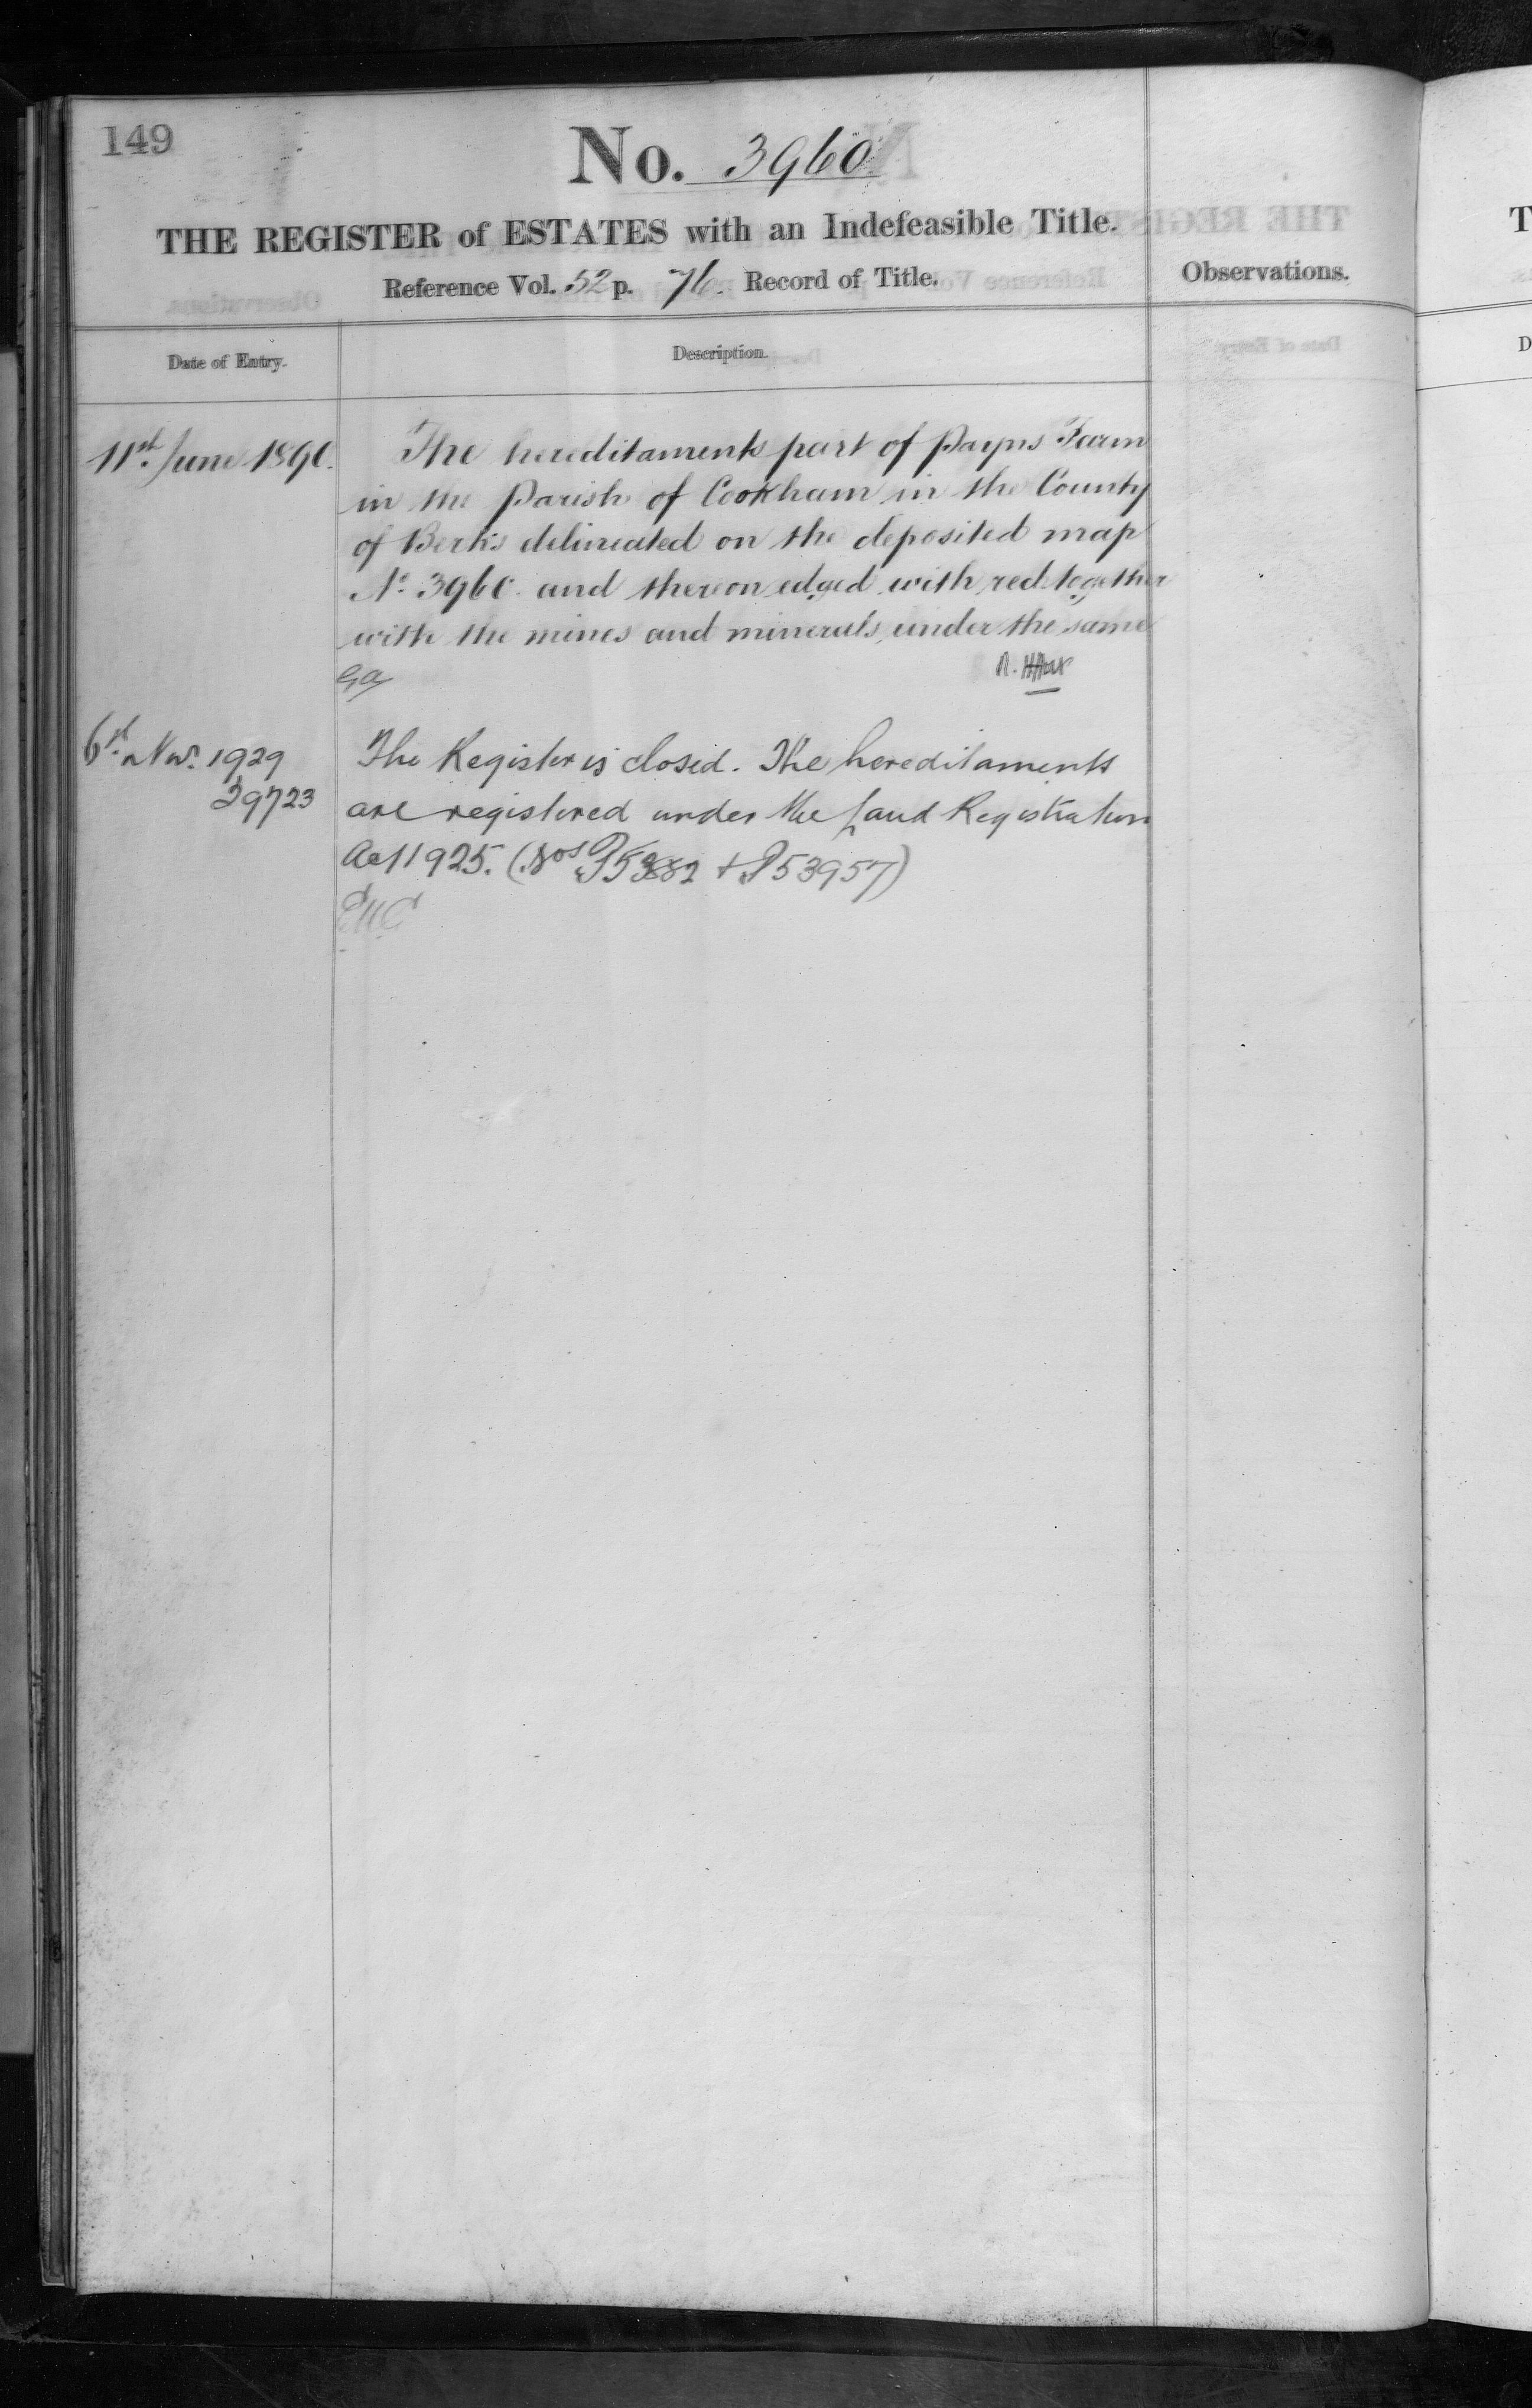 149
No. 3960
THE REGISTER of ESTATES with an Indefeasible Title.
Reference Vol. 52 p. 76. Record of Title.
Observations.
Date of Entry.
Description.
11th June 1890.
The hereditaments part of Payns Farm
in the Parish of Cookham in the County
of Berks delineated on the deposited map
No. 3960 and thereon edged with red together
with the mines and minerals under the same
6th Nov. 1929
39723
The Register is closed. The hereditaments
are registered under the Land Registration
Act 1925. (Nos & P53957)